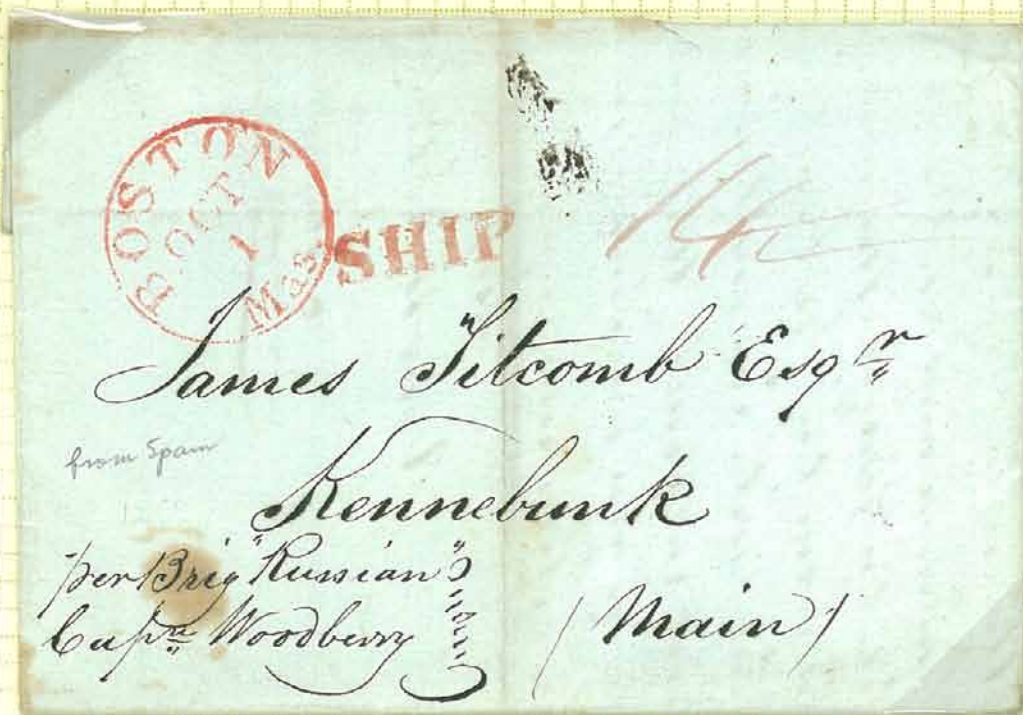 BOSTON
OCT
1
Mas.
SHIP
James Titcomb Esqr
from Spain
Kennebunk
per Brig "Russian"
Capn Woodberry
(Main)